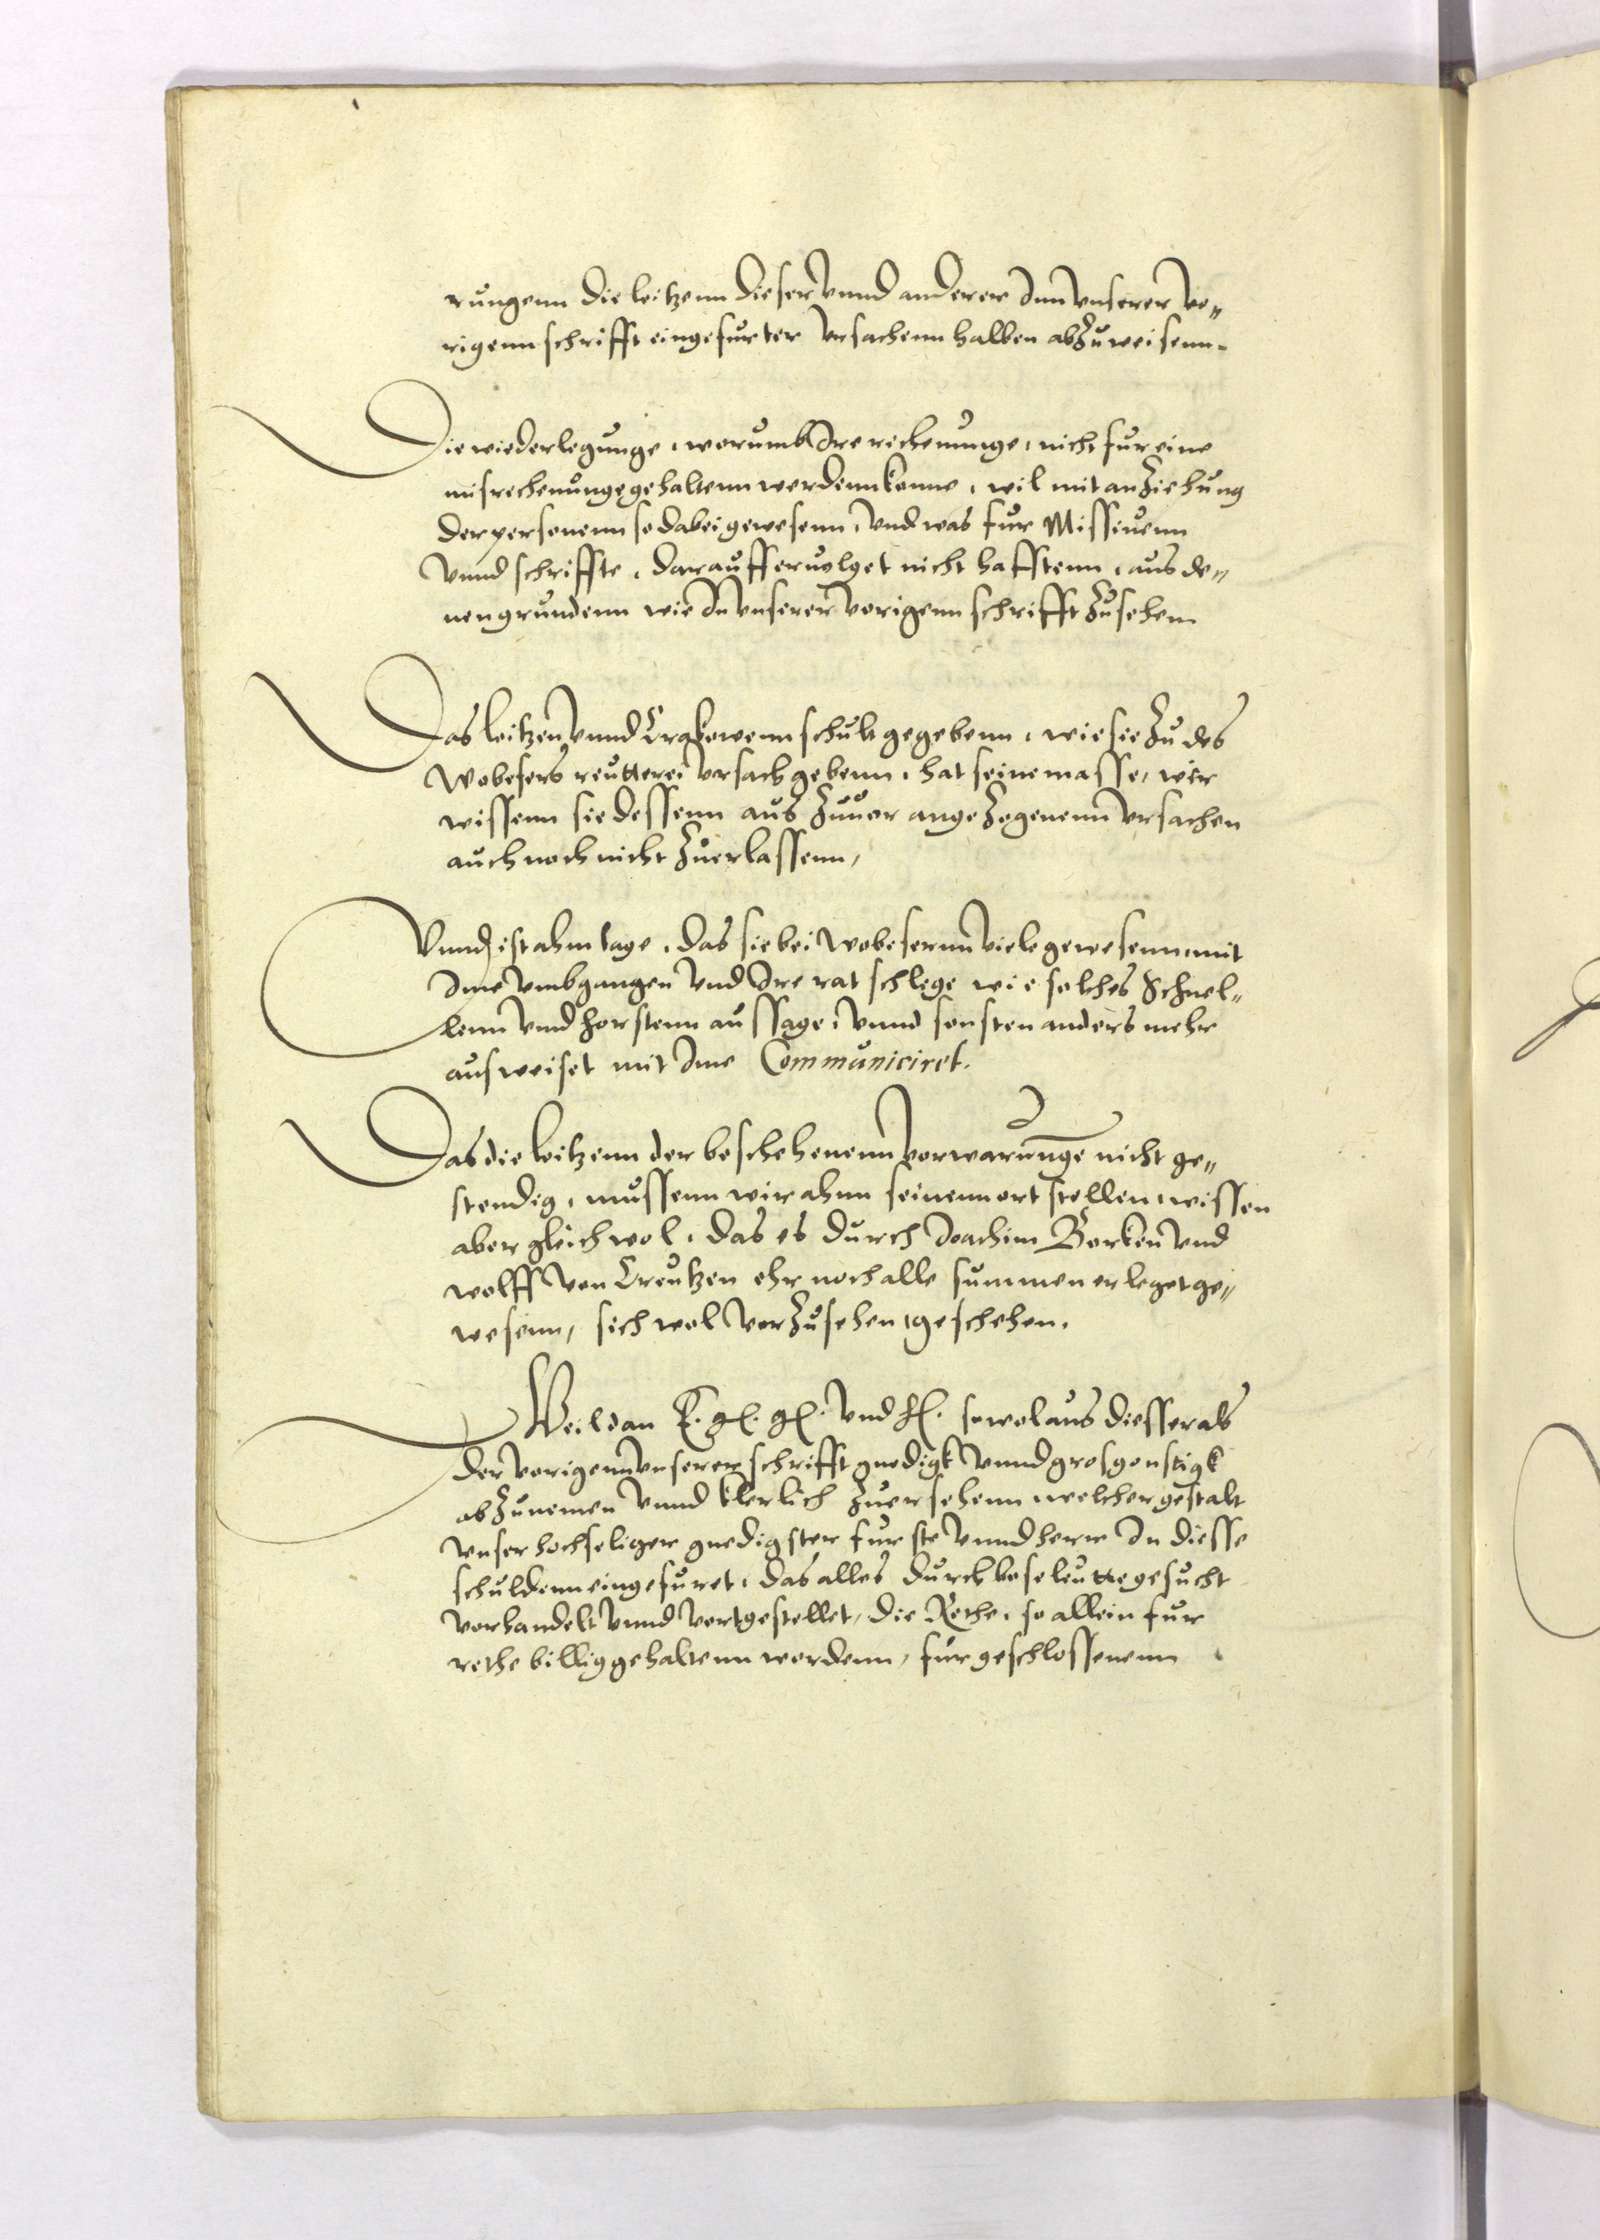 rungenn die Leitzenn dieser vnnd anderer Inn vnserer vo¬
rigenn schrifft eingefurter vrsachenn halben abzuweisenn.
Die wiederlegunge, worumb Ire rechenunge, nicht fur eine
misrechenunge gehaltenn werdenn konne, wil mit anziehung
der personenn so dabei gewesenn, vnd was fur Missiuenn
vnnd schriffte, darauff eruolget nicht hafftenn, aus de¬
nen grundenn wie In vnserer vorigenn schrifft zusehenn
Das Leitzen vnnd Crakowenn schult gegebenn, wie sie zu des
Wobesers reutterei vrsach gebenn, hat seine masse, wir
wissenn sie dessenn aus zuuor angezogenenn vrsachen
auch noch nicht zuerlassenn,
Vnnd ist ahm tage, das sie bei Wobesernn viele gewesenn, mit
Ime vmbgangen vnd Ire ratschlege wie solches Schnel¬
lenn vnnd Horstenn aussage, vnnd sonsten anders mehr
ausweiset mit Ime Communiciret.
Das die Leitzenn der beschehenenn vorwarunge nicht ge¬
stendig, mussenn wir ahnn seinenn ort stellen, wissen
aber gleichwol, das es durch Joachim Borken vnd
Wolff von Creutzen ehr noch alle summen erleget ge¬
wesenn, sich wol vorzusehen, geschehen.
Weil dan E. gl. gl. vnd hl. sowol aus diesser als
der vorigenn vnserer schrifft gnedigk vnnd grosgonstigk
abzunemen vnnd klerlich zuersehenn welcher gestalt
vnser hochseliger gnedigster furste vnnd herr In diesse
schuldenn eingefuret, das alles durch bose leutte gesucht
vorhandelt vnnd vortgestellet, die Rethe, so allein fur
rethe billig gehaltenn werdenn, furgeschlossenenn